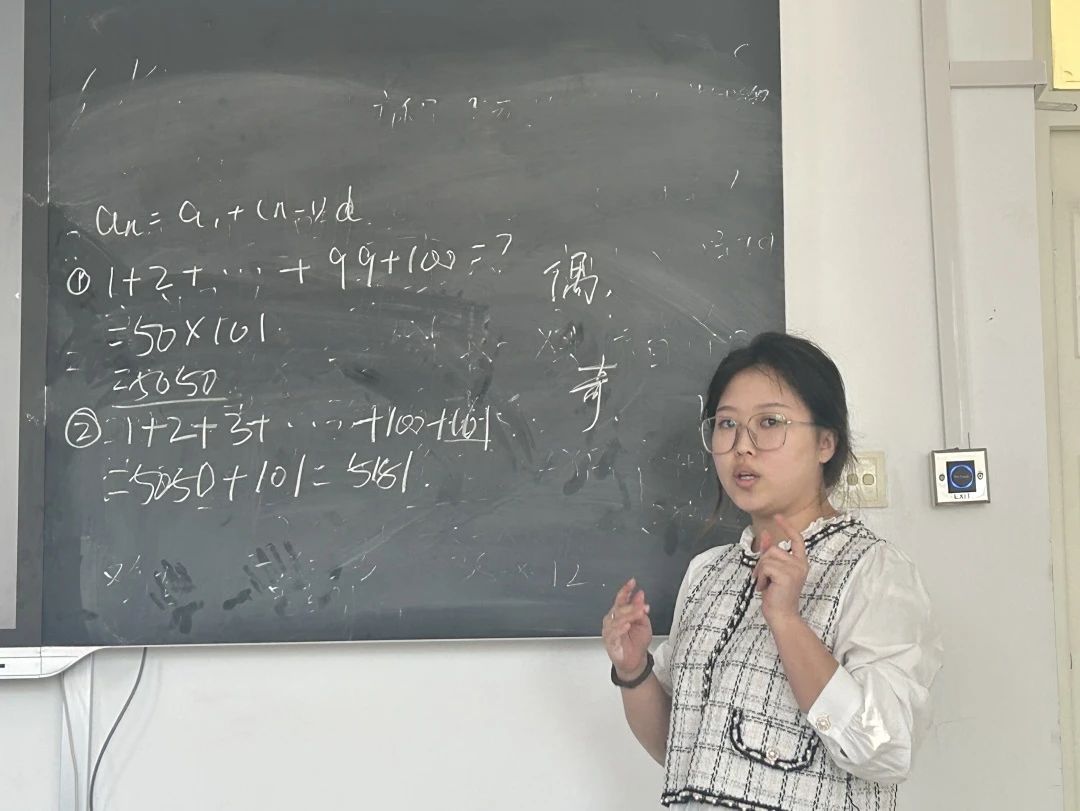 an = a1 + (n-1)d
① 1+2+……+99+100=?
=50×101
=5050
② 1+2+3+……+100+101
=5050+101=5151.
偶,
奇.
× 12.
EXIT